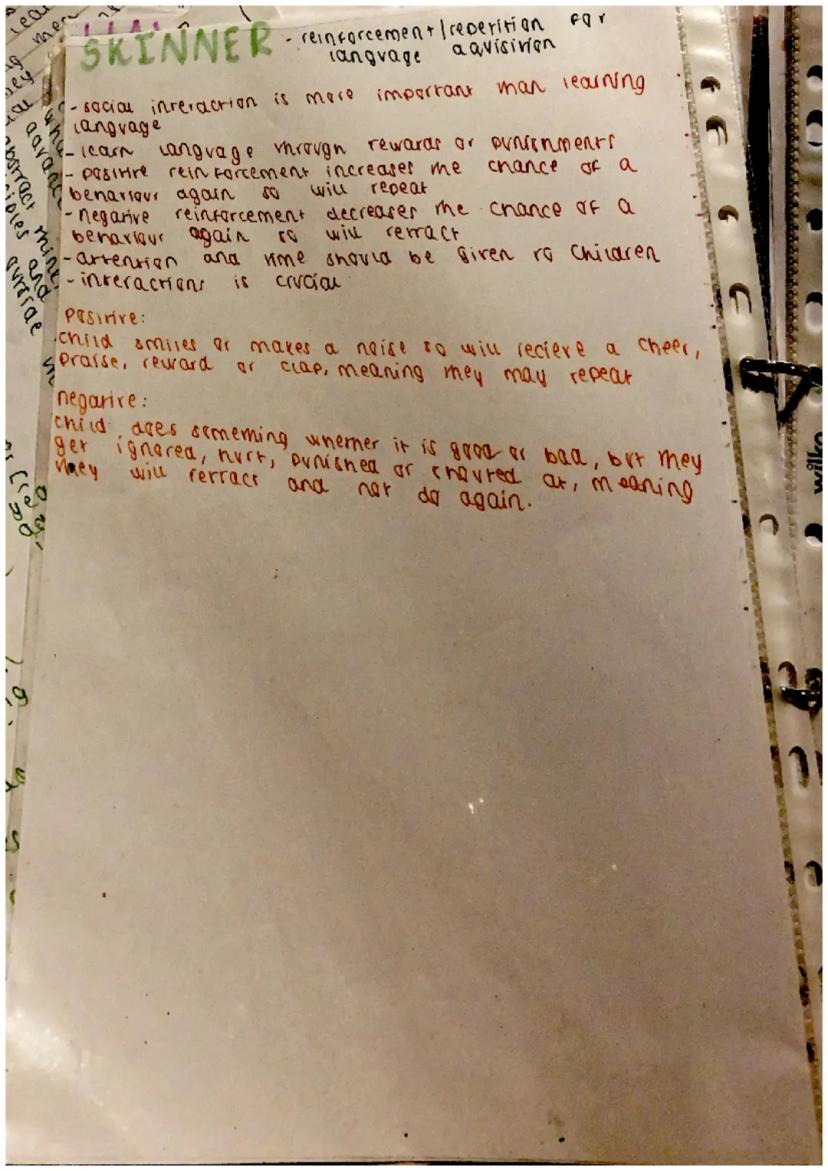 SKINNER - reinforcement/repetition for
language aqvisition
- social interaction is more important than learning
language
- learn language through rewards or punishments
- positive reinforcement increases the chance of a
behaviour again so will repeat
- negative reinforcement decreases the chance of a
behaviour again so will retract
- attention and time should be given to children
- interactions is crucial
positive:
child smiles or makes a noise so will recieve a cheer,
praise, reward or clap, meaning they may repeat
negative:
child does something whether it is good or bad, but they
get ignored, hurt, punished or shouted at, meaning
they will retract and not do again.
wilko